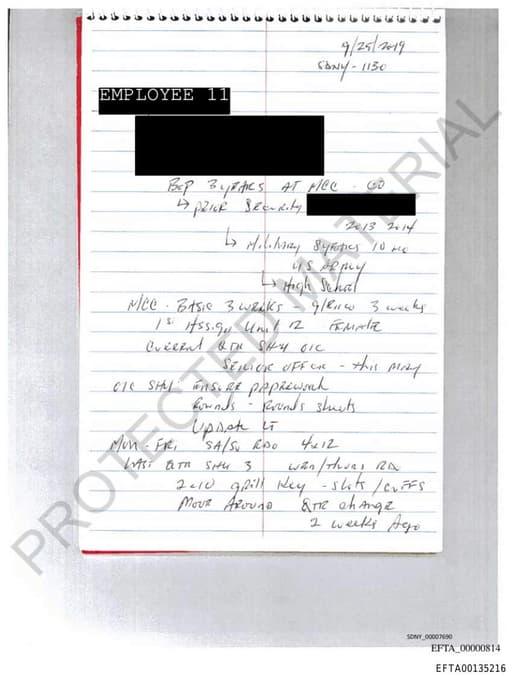 9/25/2019
SDNY - 1130
EMPLOYEE 11
BOP 3 years AT MCC - CO
↳ prior Security
2013 2014
↳ Military 8 years 10 mo
US ARMY
↳ High School
MCC - BASIC 3 weeks - 3 weeks
1st Assign Unit 2 FEMALE
CURRENT QTR SHU OIC
SENIOR OFFICER - this May
OIC SHU ENSURE PAPERWORK
Rounds - Rounds sheets
Update LT
MON - FRI SA/SU RDO 4x12
LAST QTR SHU 3 WED/Thurs RDO
2x10 grill Key - slots / cuffs
Move Around QTR change
2 weeks Ago
PROTECTED MATERIAL
SDNY_00007690
EFTA_00000814
EFTA00135216